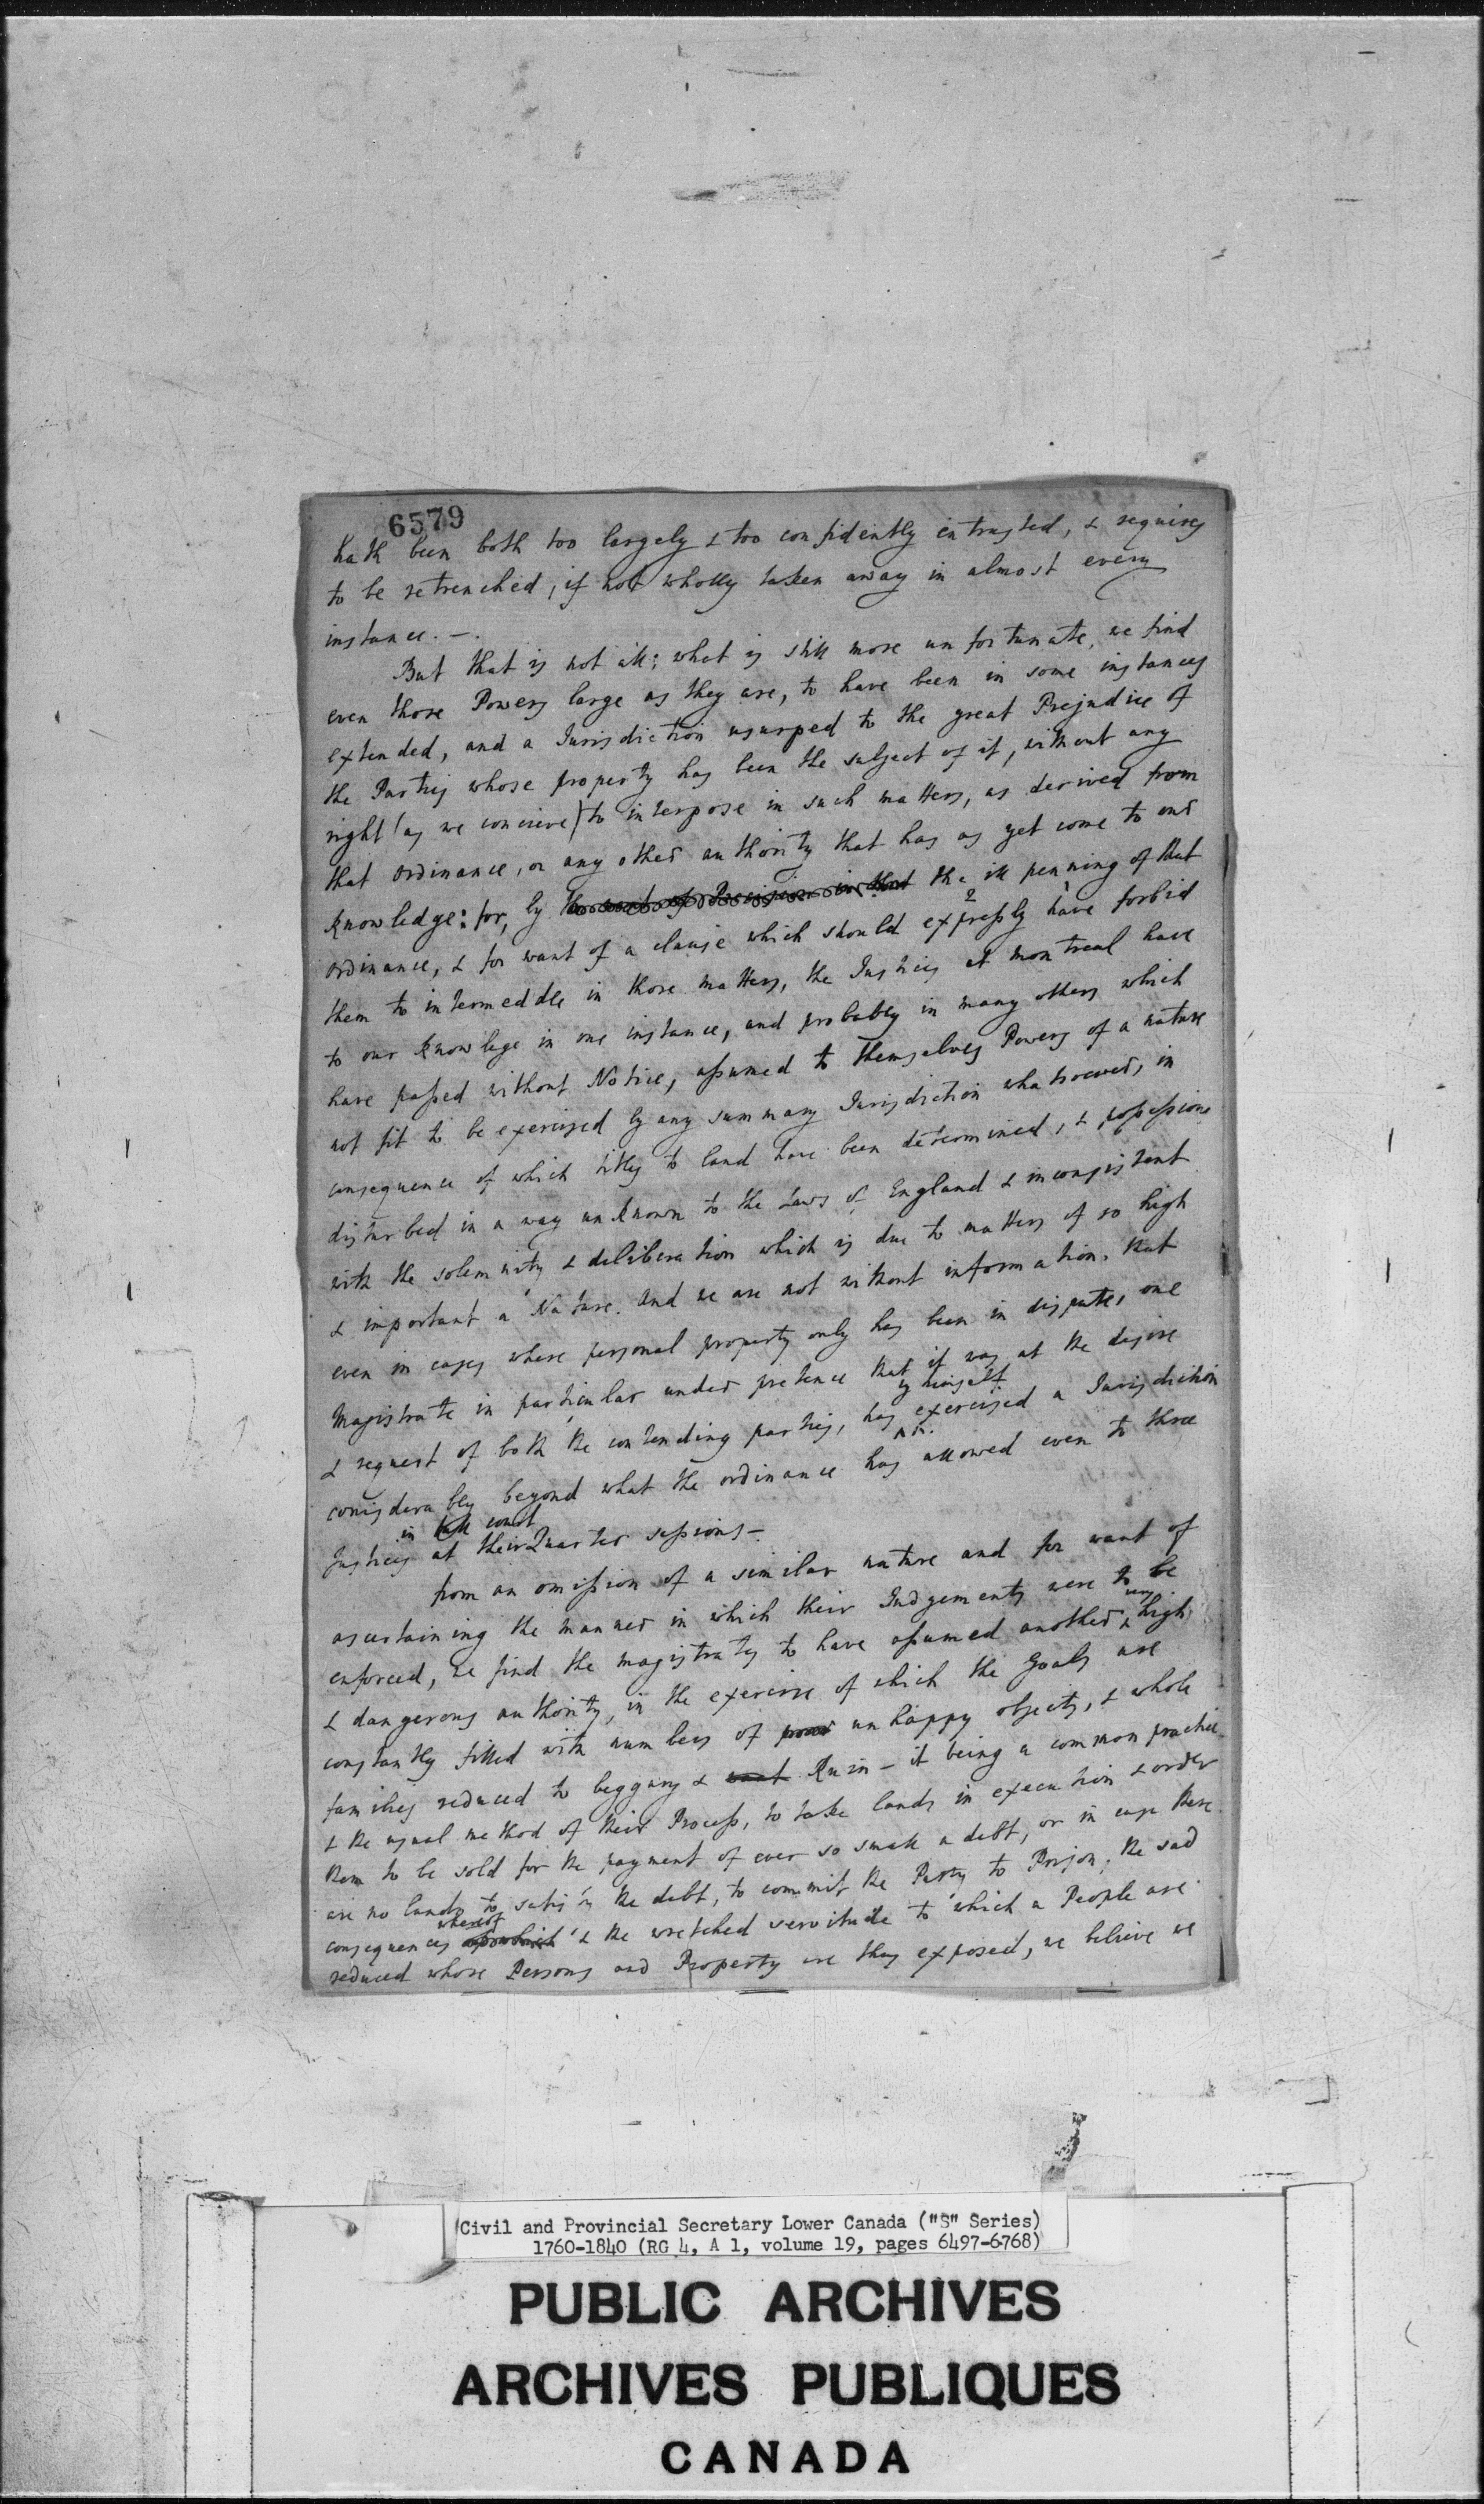 6579
hath been both too largely & too confidently intrusted, & requires
to be retrenched, if not wholly taken away in almost every
instance. -.
But that is not all; what is still more unfortunate, we find
even those Powers large as they are, to have been in some instances
extended, and a Jurisdiction usurped to the great Prejudice of
the Parties whose property has been the subject of it, without any
right (as we concieve) to interpose in such matters, as derived from
that ordinance, or any other authority that has as yet come to our
knowledge: for, by the want of Precision in that the ill penning of that
ordinance, & for want of a clause which should expressly have forbid
them to intermeddle in those matters, the Justices at montreal have
to our knowlege in one instance, and probably in many others which
have passed without Notice, assumed to themselves Powers of a nature
not fit to be exercised by any summary Jurisdiction whatsoever, in
consequence of which titles to land have been determined, & possessions
disturbed in a way unknown to the Laws of England & inconsistent
with the solemnity & deliberation which is due to matters of so high
& important a Nature. And we are not without information, that
even in cases where personal property only has been in dispute, one
Magistrate in particular under pretence that it was at the desire
& request of both the contending parties, has by himself exercised a Jurisdiction
considerably beyond what the ordinance has allowed even to three
Justices in full court at their Quarter sessions -.
from an omission of a similar nature and for want of
ascertaining the manner in which their Judgements were to be
enforced, we find the magistrates to have assumed another very high
& dangerous authority, in the exercise of which the Goals are
constantly filled with numbers of poor unhappy objects, & whole
families reduced to beggary & want Ruin - it being a common practice
& the usual method of their Process, to take lands in execution & order
them to be sold for the payment of ever so small a debt, or in case there
are no lands to satisfy the debt, to commit the Party to Prison; the sad
consequences whereof & the wretched servitude to which a People are
reduced whose Persons and Property are thus exposed, we believe we
Civil and Provincial Secretary Lower Canada ("S" Series)
1760-1840 (RG 4, A 1, volume 19, pages 6497-6768)
PUBLIC ARCHIVES
ARCHIVES PUBLIQUES
CANADA